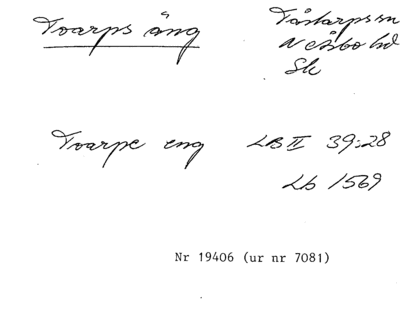 Toarps äng
Tåstarps sn
N Åsbo hd
Sk
Toarpe eng LB II 39:28
Lb 1569
Nr 19406 (ur nr 7081)